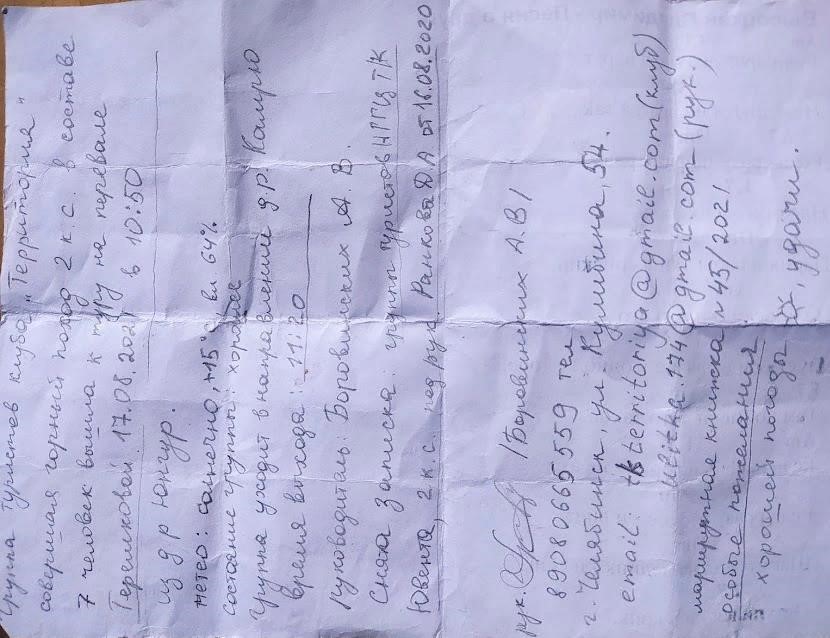 Группа туристов клуба "Территория"
совершая горный поход 2 к.с. в составе
7 человек вышла к туру на перевале
Терешковой 17.08.2021 в 10:50
из д.р Юнгур.
метео: солнечно, +15°C вл. 64%
состояние группы хорошее
Группа уходит в направление д.р. Камрю
время выхода: 11:20
Руководитель: Боровинских А.В.
Снята записка: группы туристов НГГЦ т/к
Ювента, 2 к.с. под рук. Ранкова Д.А от 16.08.2020
рук. /Боровинских А.В/
89080665559 тел
г. Челябинск, ул Кулибина, 54.
email: tkterritoriya@gmail.com (клуб)
ulitka.174@gmail.com (рук.)
маршрутная книжка №45/2021
особые пожелания
хорошей погоды, удачи.